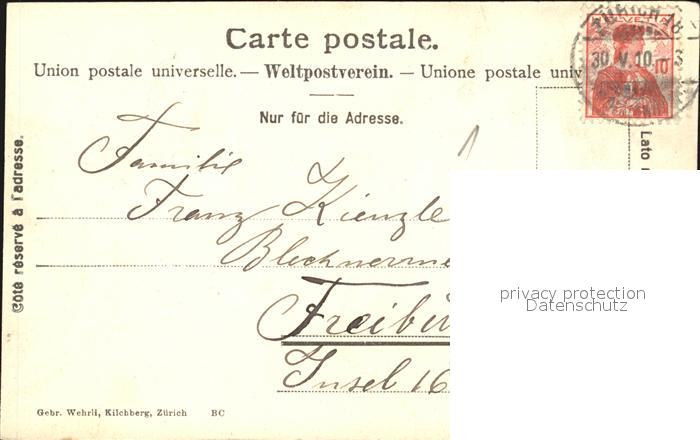 Carte postale.
Union postale universelle. — Weltpostverein. — Unione postale univ
Nur für die Adresse.
Côté réservé à l'adresse.
Lato
HELVETIA
10
ZÜRICH
30. V. 10. – 3
Familie
Franz Kienzle
Blechnerme
Freibu
Insel 16
privacy protection
Datenschutz
Gebr. Wehrli, Kilchberg, Zürich BC